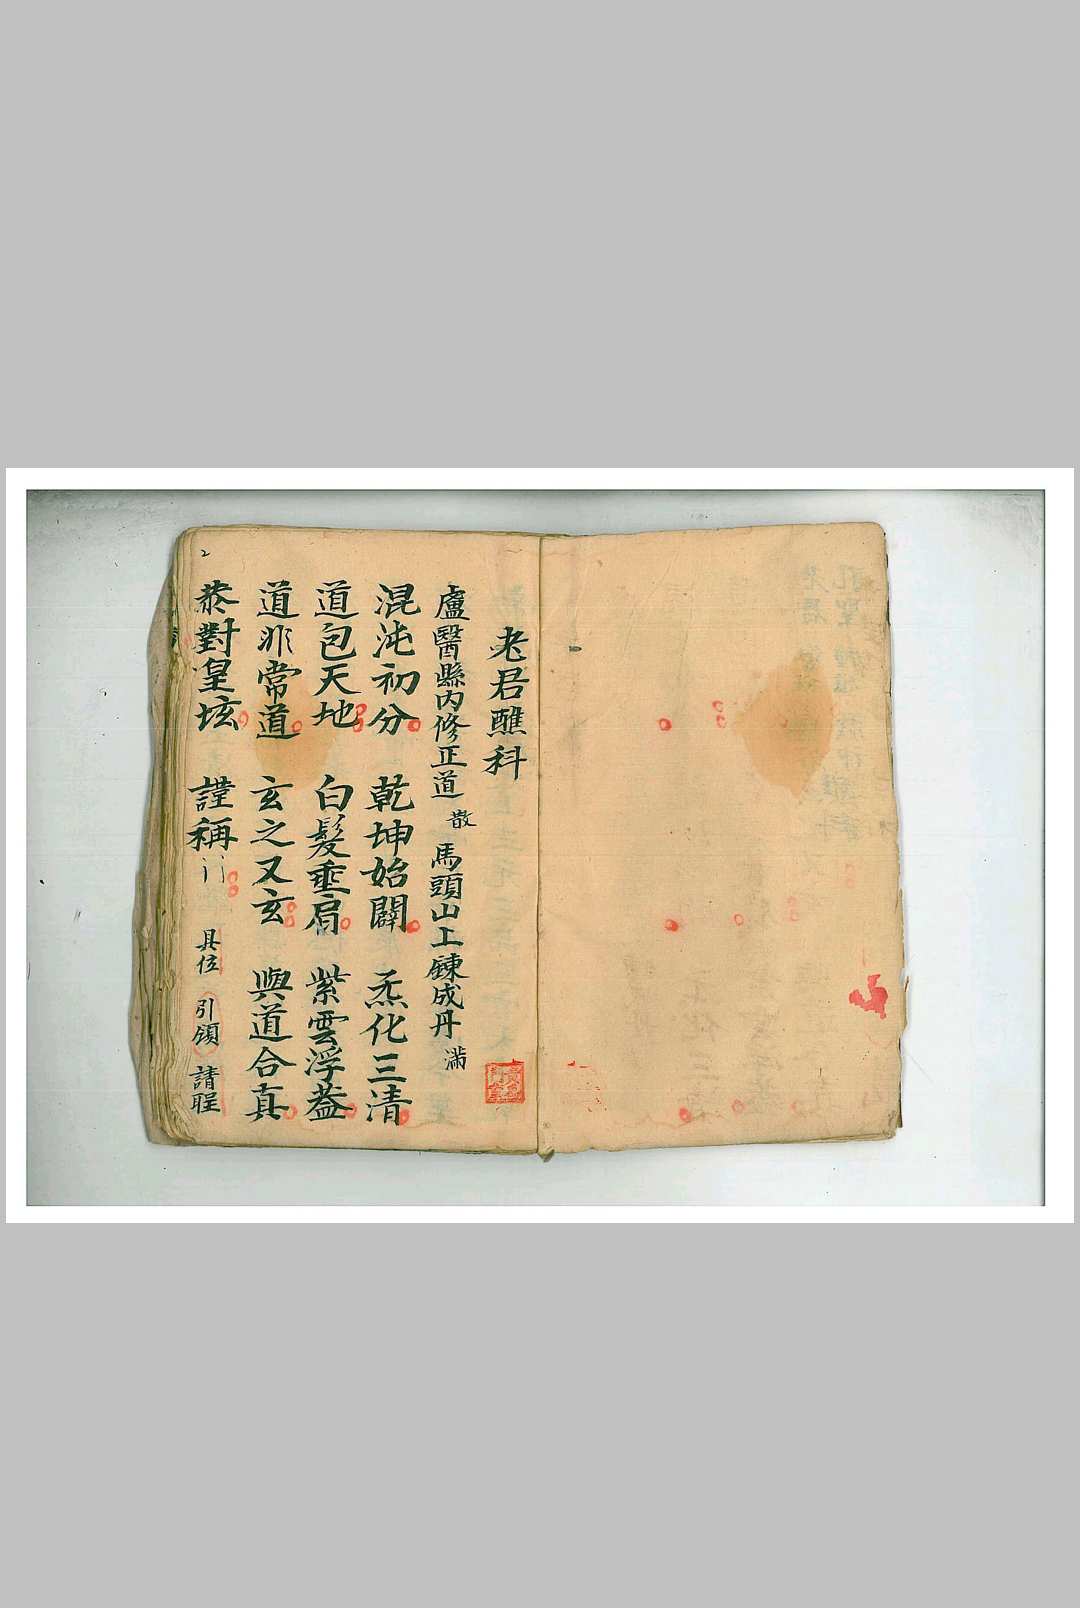 老君醮科
盧醫縣內修正道 散 馬頭山上鍊成丹 滿
混沌初分 乾坤始闢 炁化三清
道包天地 白髮垂肩 紫雲浮蓋
道非常道 玄之又玄 與道合真
恭對皇坛 謹稱 具位 引領 請聖
2